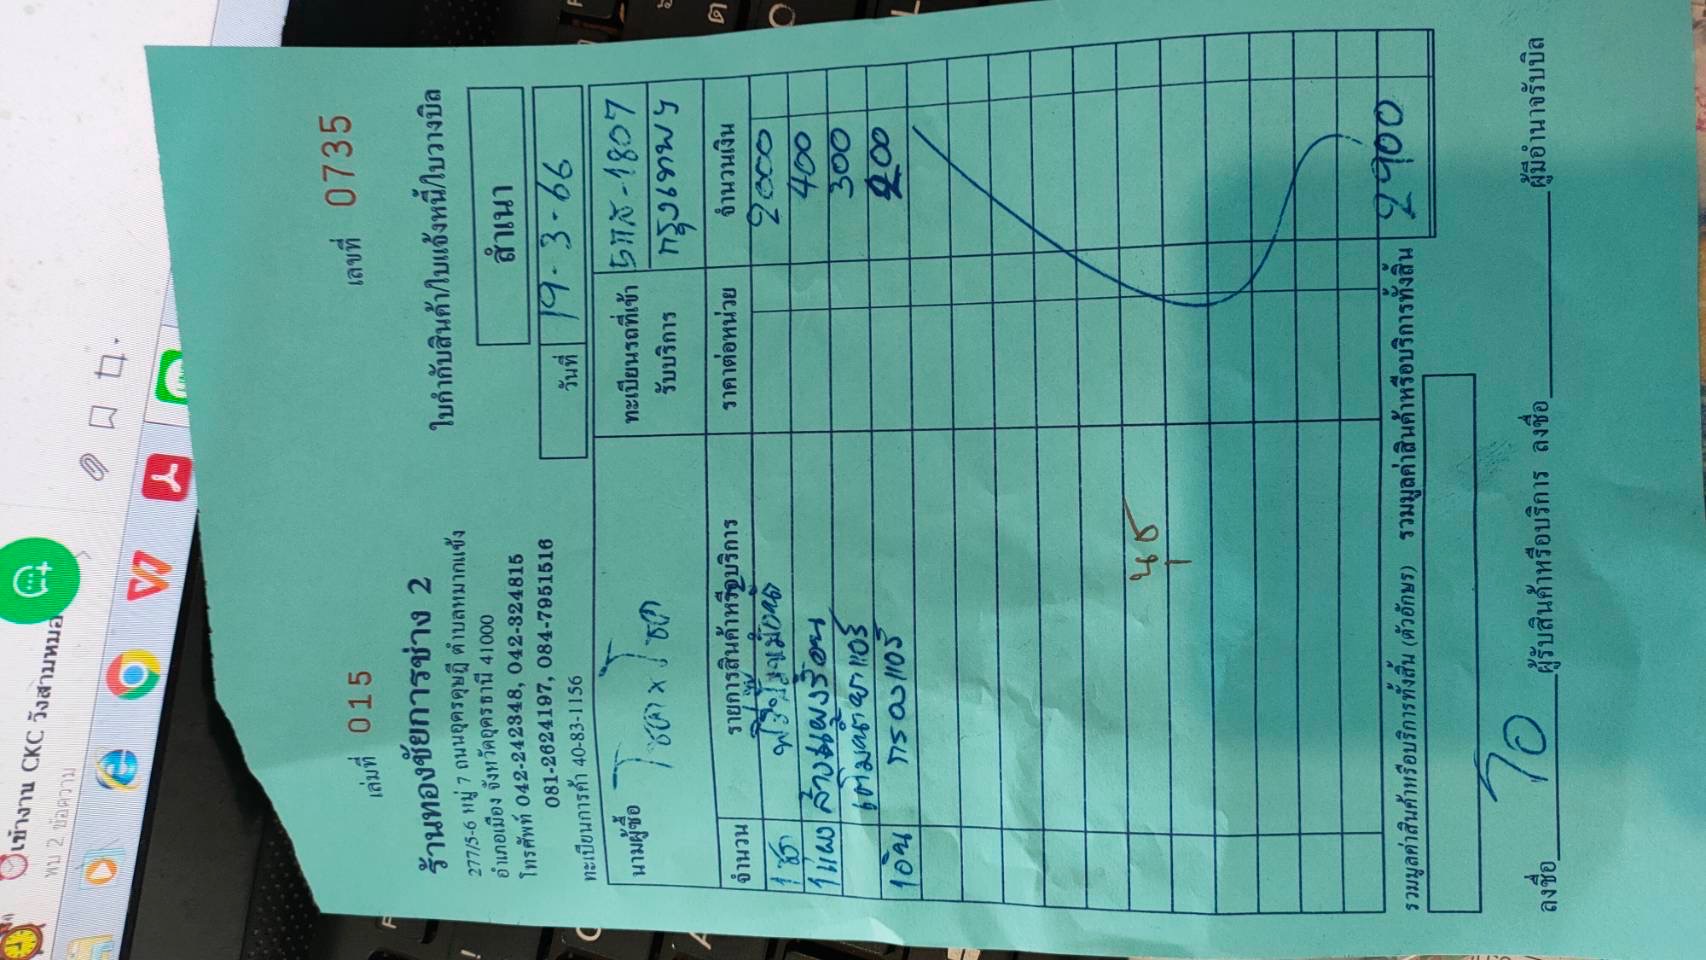 เล่มที่ 015
เลขที่ 0735
ร้านทองชัยการช่าง 2
ใบกำกับสินค้า/ใบแจ้งหนี้/ใบวางบิล
277/5-6 หมู่ 7 ถนนอุดรดุษฎี ตำบลหมากแข้ง
อำเภอเมือง จังหวัดอุดรธานี 41000
สำเนา
โทรศัพท์ 042-242848, 042-324815
081-2624197, 084-7951516
วันที่ 19-3-66
ทะเบียนการค้า 40-83-1156
นามผู้ซื้อ
ทะเบียนรถที่เข้ารับบริการ
-1807
กรุงเทพฯ
จำนวน รายการสินค้าหรือบริการ ราคาต่อหน่วย จำนวนเงิน
2000
1แผง ล้างแผงร้อน 400
300
1อัน กรองแอร์ 200
รวมมูลค่าสินค้าหรือบริการทั้งสิ้น (ตัวอักษร) รวมมูลค่าสินค้าหรือบริการทั้งสิ้น 2900
ลงชื่อ ผู้รับสินค้าหรือบริการ ลงชื่อ ผู้มีอำนาจรับบิล
เข้างาน CKC วังสามหมอ
พบ 2 ข้อความ